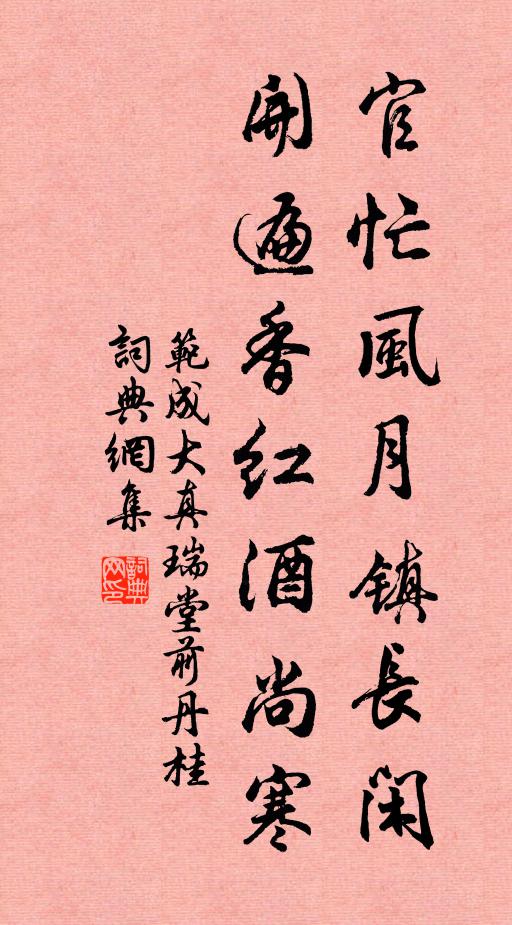 官忙風月鎮長閑
開遍香紅酒尚寒
範成大真瑞堂前丹桂
詞典網集
詞典網印